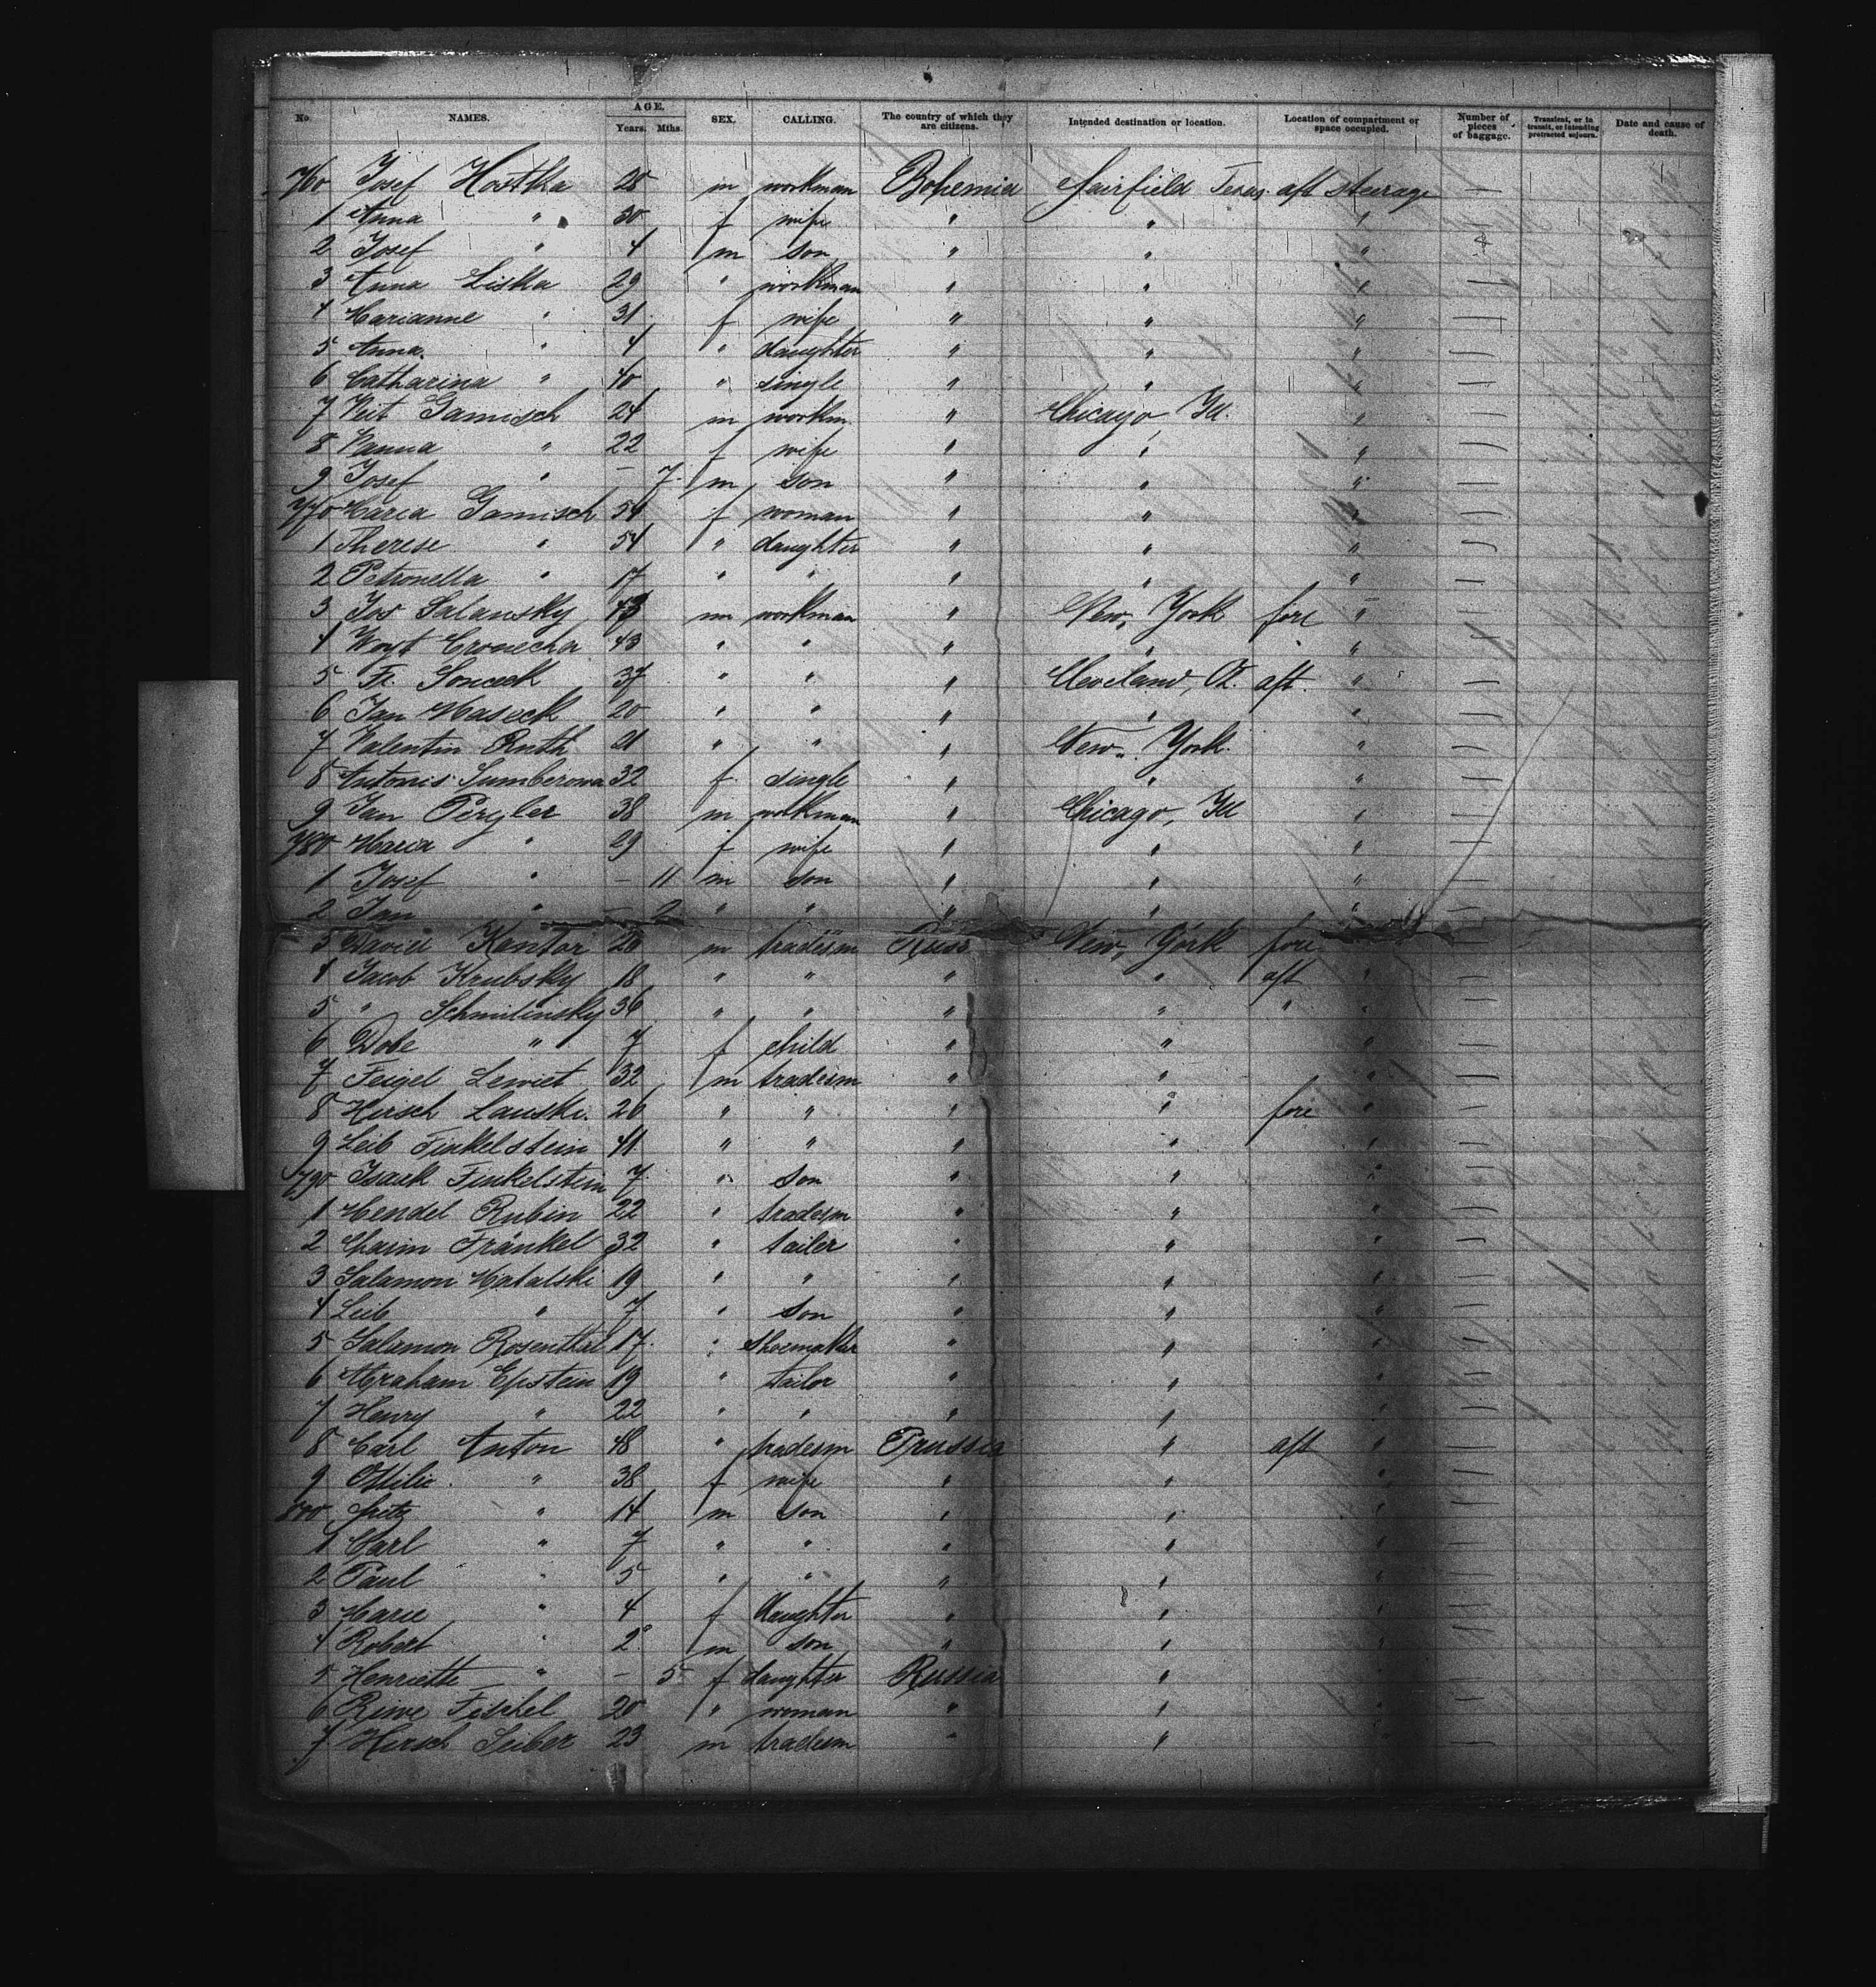 No. NAMES. AGE. Years. Mths. SEX. CALLING. The country of which they are citizens. Intended destination or location. Location of compartment or space occupied. Number of pieces of baggage. Transient, or in transit, or intending protracted sojourn. Date and cause of death.
760 Josef Hostka 28 m workman Bohemia Fairfield Texas aft steerage
1 Anna " 30 f wife " " "
2 Josef " 4 m son " " "
3 Anna Liska 29 " workman " " "
4 Marianne " 31 f wife " " "
5 Anna " 4 " daughter " " "
6 Catharina " 40 " single " " "
7 Veit Gamisch 24 m workm. " Chicago, Ill. "
8 Hanna " 22 f wife " " "
9 Josef " – 7 m son " " "
770 Maria Gamisch f woman " " "
1 Therese " 54 " daughter " " "
2 Petronella " 17 " " " " "
3 Jos Salansky m workman " New York fore "
4 Woyt 43 " " " " "
5 Fr. 37 " " " Cleveland, O. aft "
6 Jan Maseck 20 " " " " "
7 Valentin Ruth 21 " " " New York "
8 Antonis Sumberowa 32 f single " " "
9 Jan Pergler 38 m workman " Chicago, Ill "
780 Maria " 29 f wife " " "
1 Josef " – 11 m son " " "
2 Jan " – 2 " " " " "
3 David Kantor 26 m tradesm Russ New York fore
4 Jacob Krubsky 18 " " " " aft "
5 " Schmilinsky 36 " " " " " "
6 Dobe " 7 f child " " "
7 Feigel Lewiet 32 m tradesm " " "
8 Hirsch Lauski 26 " " " " fore "
9 Leib Finkelstein 41 " " " " "
790 Isaek Finkelstein 7 " son " " "
1 Mendel Rubin 22 " tradesm " " "
2 Chaim Fränkel 32 " tailer " " "
3 Salamon Matalski 19 " " " " "
4 Leib " 7 " son " " "
5 Salamon Rosenthal 17 " shoemaker " " "
6 Abraham Epstein 19 " tailor " " "
7 Henry " 22 " " " " "
8 Carl Anton 48 " tradesm Prussia " aft "
9 Ottilie " 38 f wife " " "
800 Fritz " 14 m son " " "
1 Carl " 7 " " " " "
2 Paul " 5 " " " " "
3 Marie " 4 f daughter " " "
4 Robert " 2 m son " " "
5 Henriette " – 5 f daughter Russia " "
6 Riwe Fischel 20 " woman " " "
7 Hirsch Leiber 23 m tradesm " "